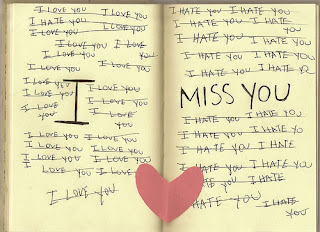 I LOVE YOU I LOVE YOU
I HATE YOU I LOVE YOU
I LOVE YOU I LOVE YOU
I LOVE YOU I LOVE
I LOVE YOU YOU
I LOVE YOU I LOVE YOU
I LOVE YOU I LOVE YOU
I LOVE YOU
I
I LOVE YOU I LOVE YOU
I LOVE YOU I LOVE YOU
I LOVE YOU I LOVE YOU
I LOVE YOU I LOVE YOU
I LOVE YOU I LOVE YOU
LOVE YOU I LOVE YOU
I LOVE YOU
I HATE YOU I HATE YOU
I HATE YOU I HATE
YOU
I HATE YOU I HATE YOU
I HATE YOU I HATE YOU
I HATE YOU I HATE
MISS YOU
I HATE YOU I HATE YOU
I HATE YOU I HATE YO
I HATE YOU I HATE
I HATE YOU I HATE YOU
HATE YOU I HATE
HATE YOU I HATE
YOU